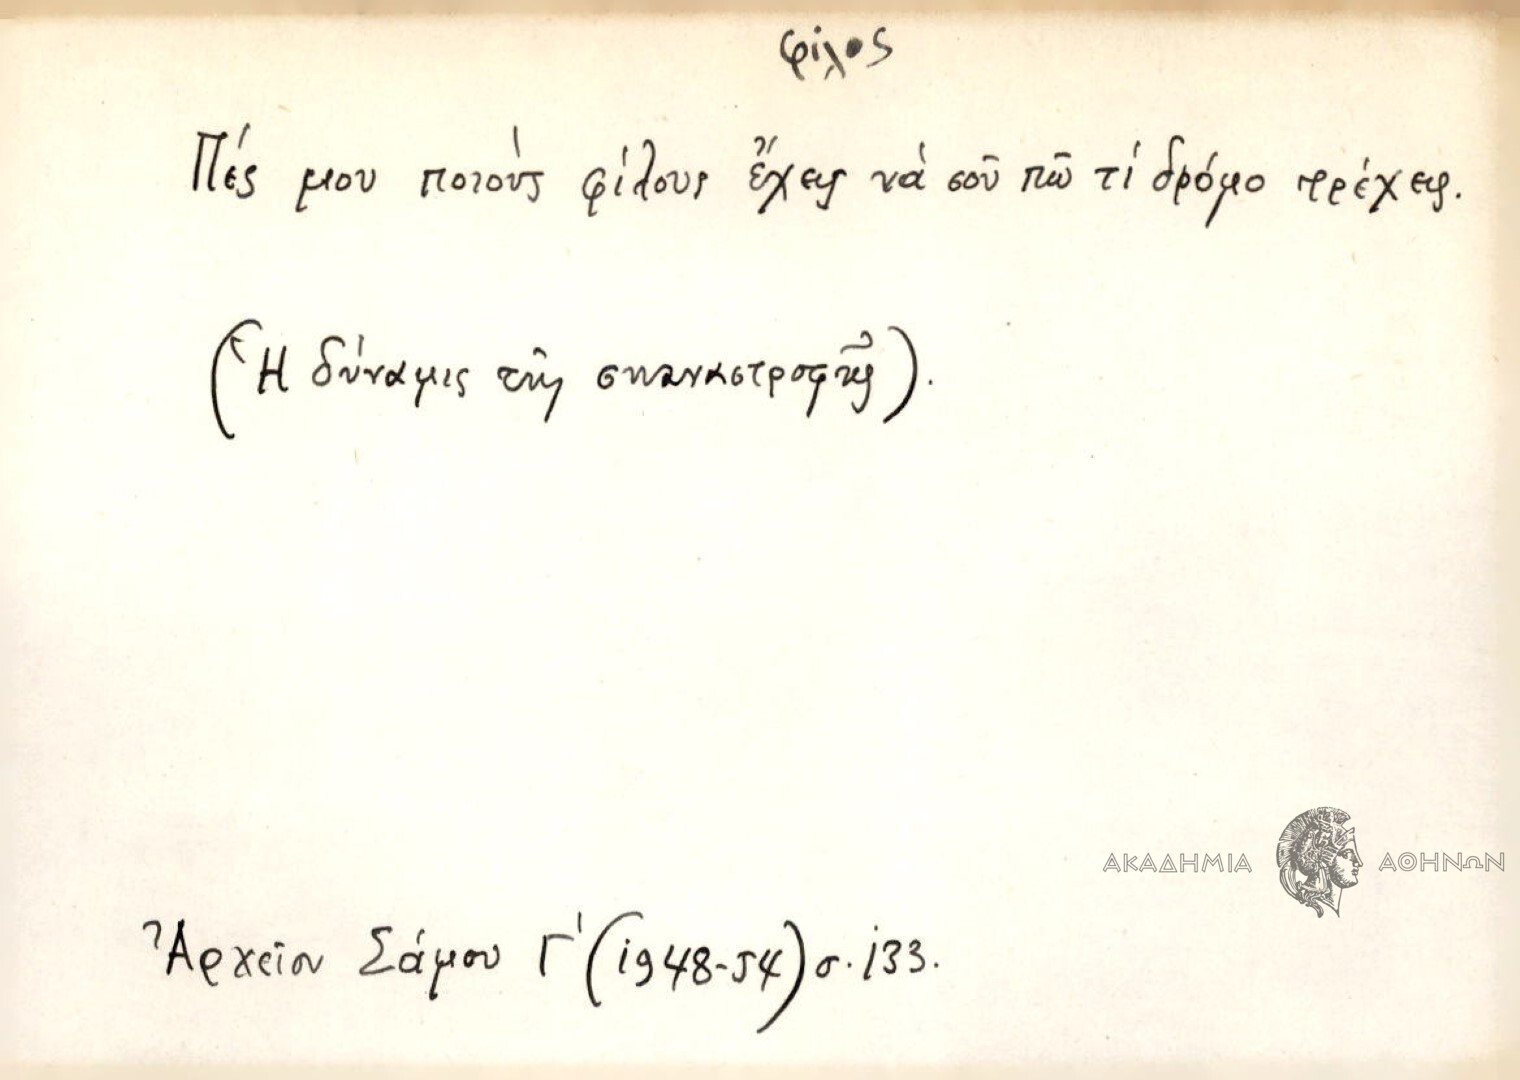 φίλος
Πές μου ποιούς φίλους ἔχεις νά σοῦ πῶ τί δρόμο τρέχεις.
(Ἡ δύναμις τῆς συναναστροφῆς).
ΑΚΑΔΗΜΙΑ ΑΘΗΝΩΝ
Ἀρχεῖον Σάμου Γ' (1948-54) σ. 133.